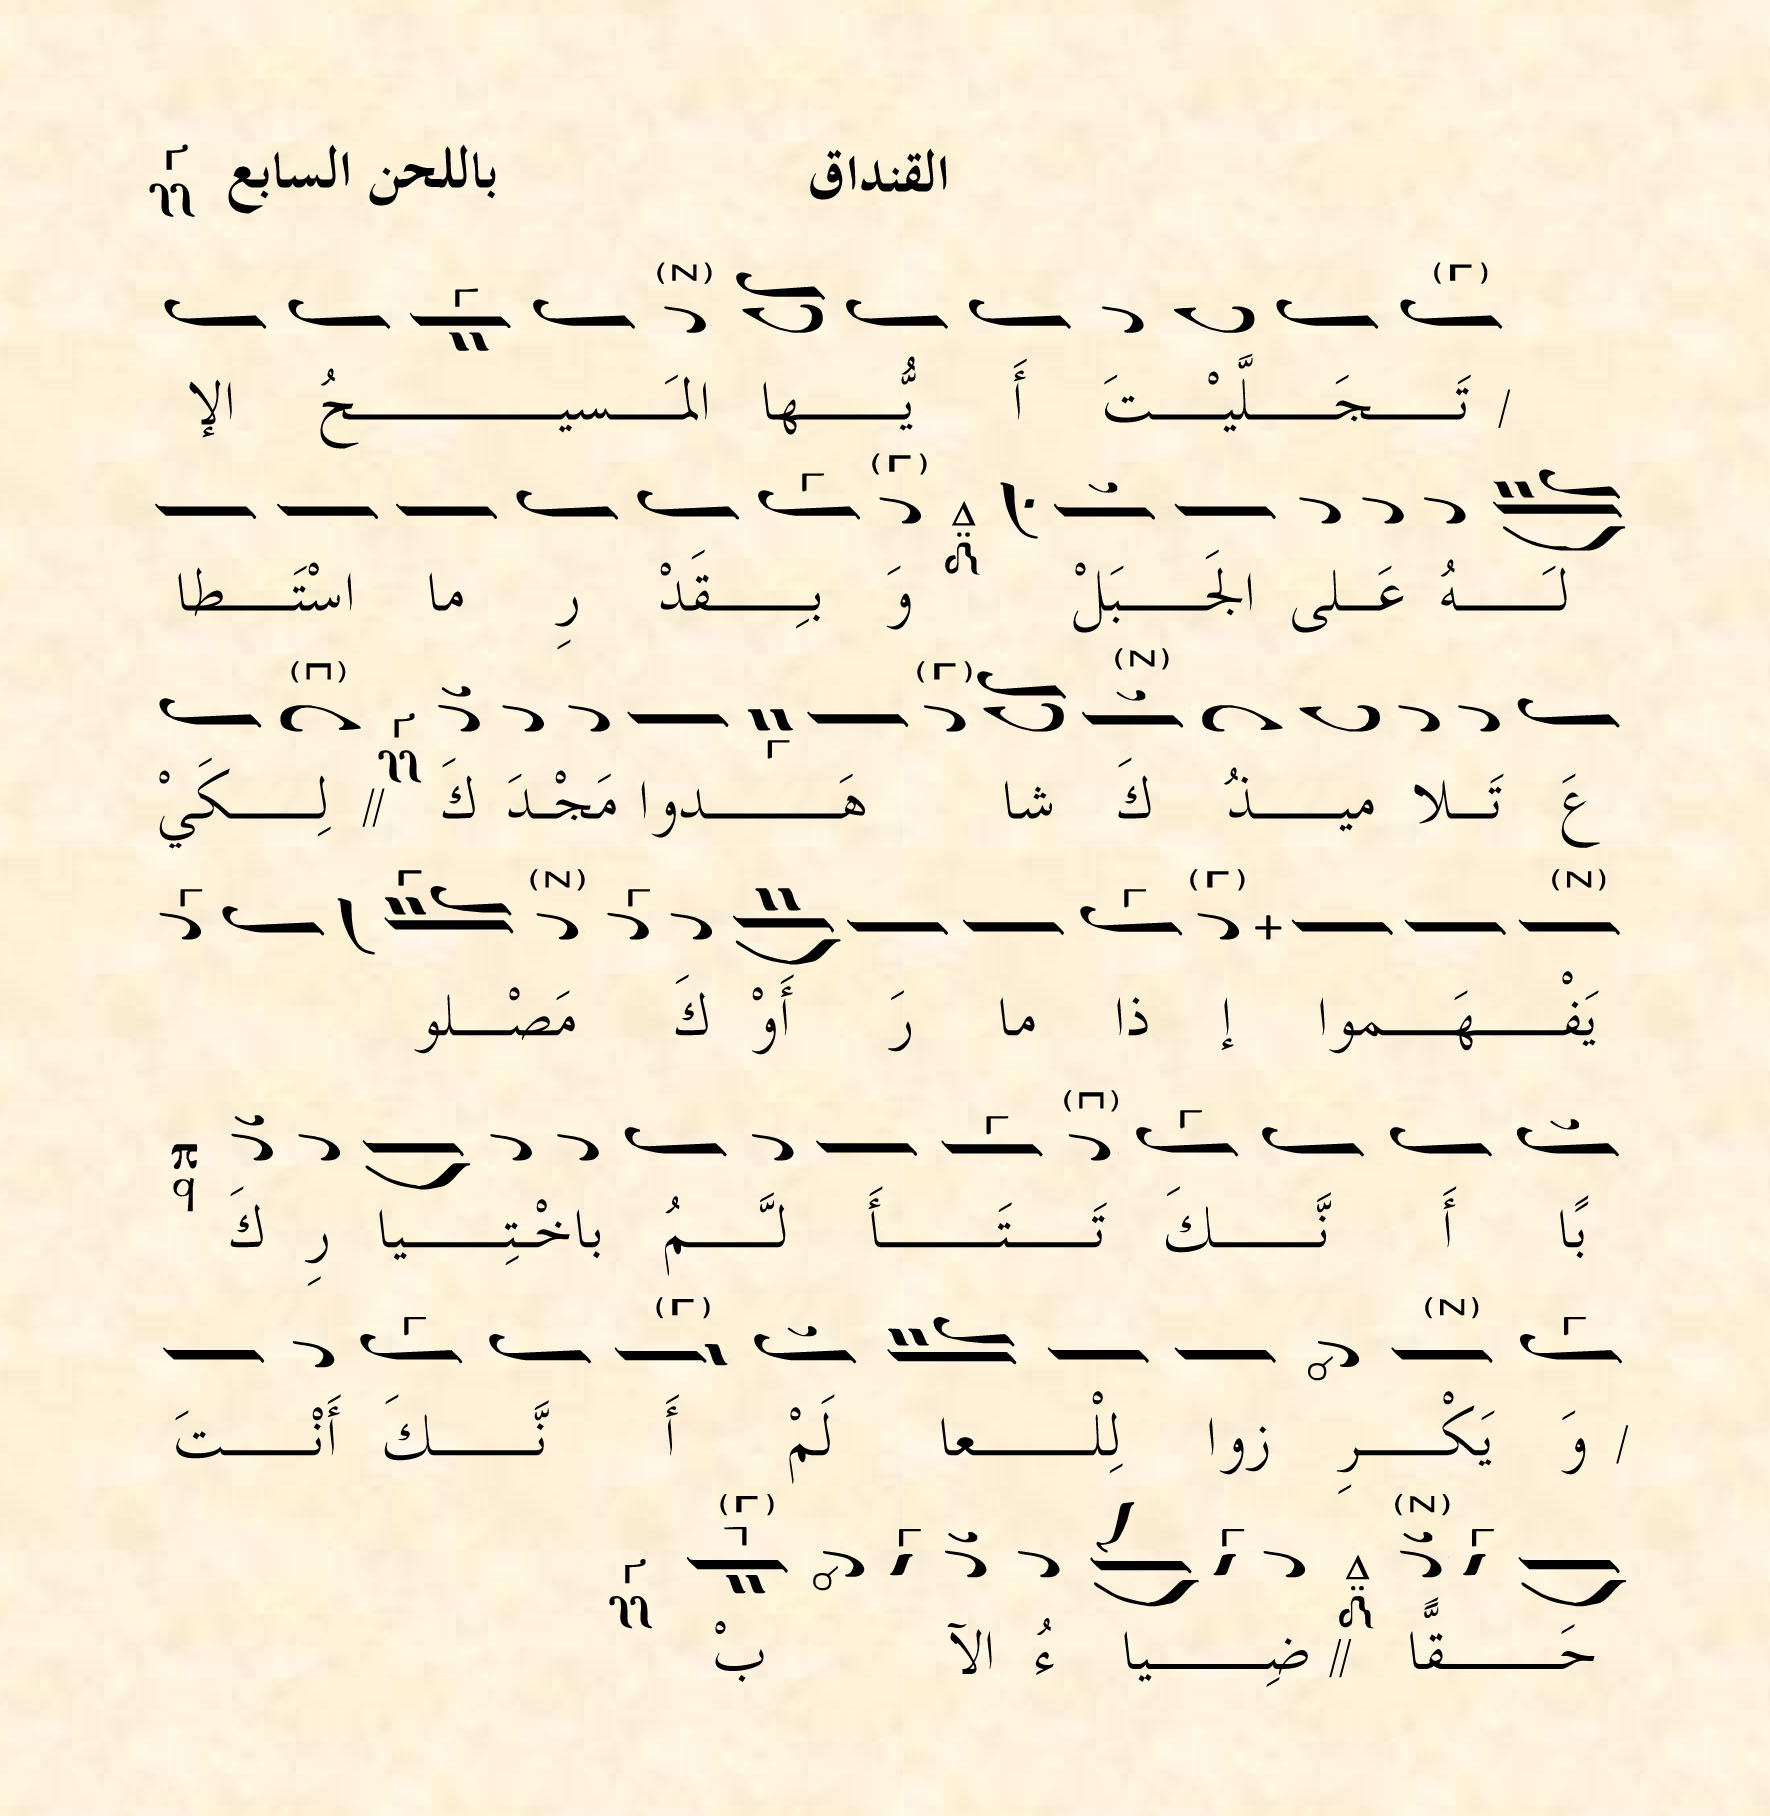 القنداق باللحن السابع
/ تَـــجَـــلَّيْـــتَ أَ يُّـــها المَـــسيـــحُ الإ
لَـــهُ عَـــلى الجَـــبَلْ وَ بِـــقَدْ رِ ما اسْتَـــطا
عَ تَـــلا ميـــذُ كَ شا هَـــدوا مَجْـــدَ كَ // لِـــكَيْ
يَفْـــهَـــموا إ ذا ما رَ أَوْ كَ مَصْـــلو
بًا أَ نَّـــكَ تَـــتَـــأَ لَّـــمُ باخْـــتِـــيا رِ كَ
/ وَ يَكْـــرِ زوا لِلْـــعا لَمْ أَ نَّـــكَ أَنْـــتَ
حَـــقًّا // ضِـــيا ءُ الآ بْ